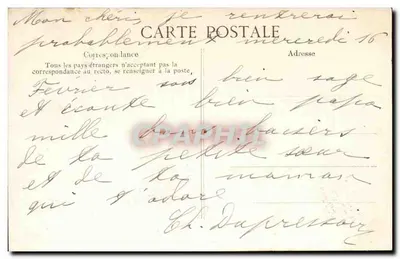 Mon chéri, je rentrerai
probablement mercredi 16
CARTE POSTALE
Correspondance
Tous les pays étrangers n'acceptant pas la
correspondance au recto, se renseigner à la poste.
Adresse
Février sois bien sage
et écoute bien papa
mille bons baisers
de ta petite sœur
et de ta maman
qui t'adore
Ch. Dupressoir
CPAPHIL